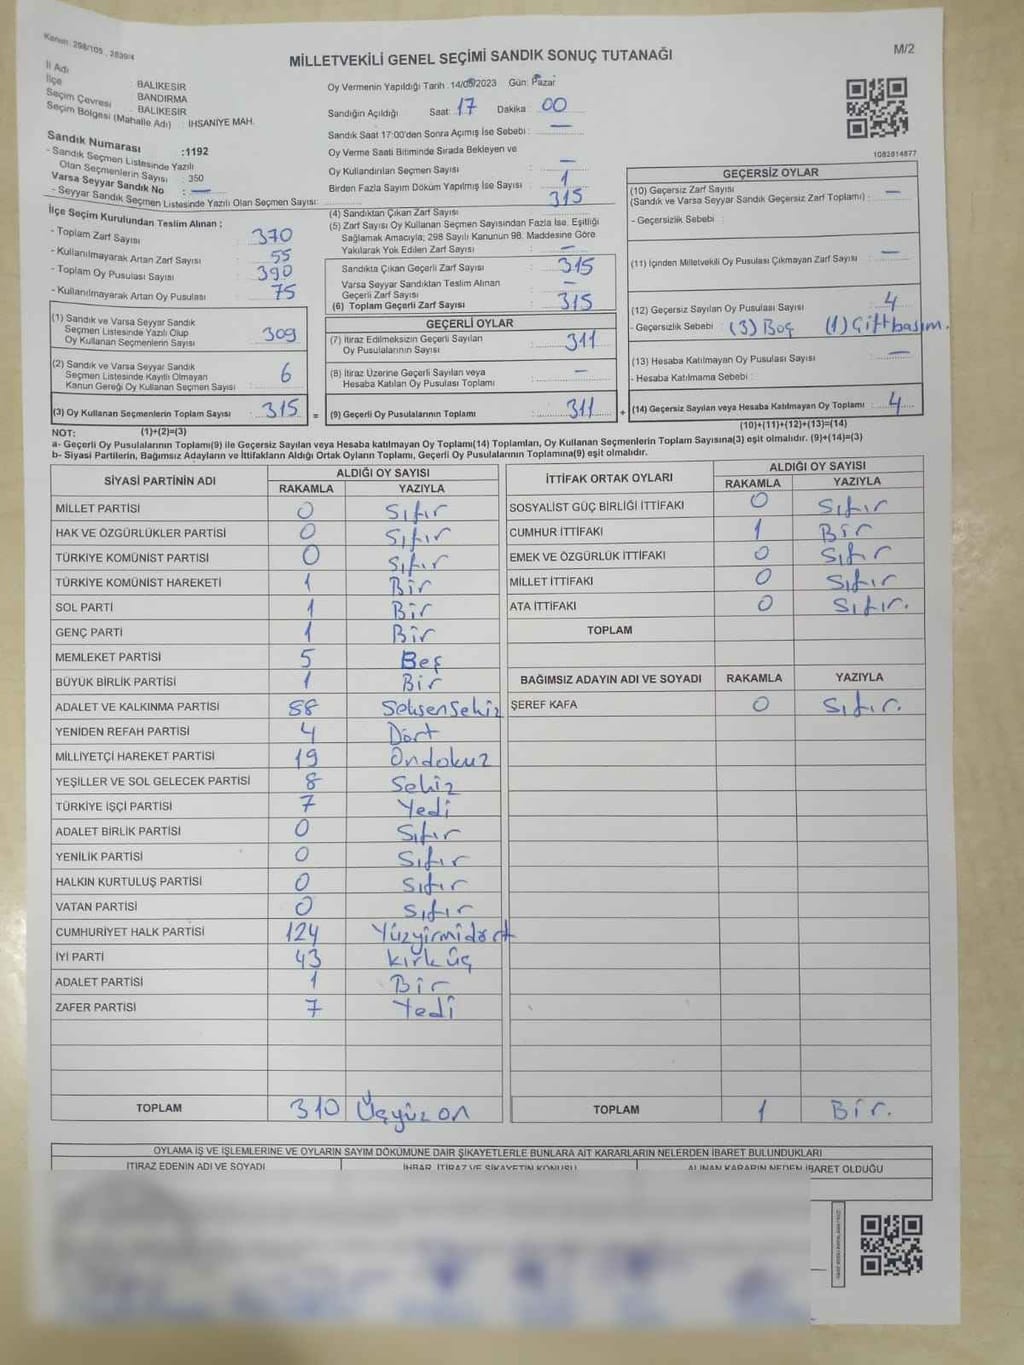 Kanun: 298/105, 2839/4
MİLLETVEKİLİ GENEL SEÇİMİ SANDIK SONUÇ TUTANAĞI
M/2
İl Adı BALIKESİR
İlçe BANDIRMA
Seçim Çevresi BALIKESİR
Seçim Bölgesi (Mahalle Adı) : İHSANİYE MAH.
Sandık Numarası :1192
- Sandık Seçmen Listesinde Yazılı
Olan Seçmenlerin Sayısı : 350
Varsa Seyyar Sandık No : —
- Seyyar Sandık Seçmen Listesinde Yazılı Olan Seçmen Sayısı:
İlçe Seçim Kurulundan Teslim Alınan :
- Toplam Zarf Sayısı 370
- Kullanılmayarak Artan Zarf Sayısı 55
- Toplam Oy Pusulası Sayısı 390
- Kullanılmayarak Artan Oy Pusulası 75
(1) Sandık ve Varsa Seyyar Sandık
Seçmen Listesinde Yazılı Olup
Oy Kullanan Seçmenlerin Sayısı 309
(2) Sandık ve Varsa Seyyar Sandık
Seçmen Listesinde Kayıtlı Olmayan
Kanun Gereği Oy Kullanan Seçmen Sayısı 6
(3) Oy Kullanan Seçmenlerin Toplam Sayısı 315 =
Oy Vermenin Yapıldığı Tarih : 14/05/2023 Gün: Pazar
Sandığın Açıldığı Saat: 17 Dakika : 00
Sandık Saat 17:00'den Sonra Açmış İse Sebebi : —
Oy Verme Saati Bitiminde Sırada Bekleyen ve
Oy Kullandırılan Seçmen Sayısı : —
Birden Fazla Sayım Döküm Yapılmış İse Sayısı : 1
(4) Sandıktan Çıkan Zarf Sayısı : 315
(5) Zarf Sayısı Oy Kullanan Seçmen Sayısından Fazla İse, Eşitliği
Sağlamak Amacıyla; 298 Sayılı Kanunun 98. Maddesine Göre
Yakılarak Yok Edilen Zarf Sayısı : —
Sandıkta Çıkan Geçerli Zarf Sayısı : 315
Varsa Seyyar Sandıktan Teslim Alınan
Geçerli Zarf Sayısı : —
(6) Toplam Geçerli Zarf Sayısı : 315
GEÇERLİ OYLAR
(7) İtiraz Edilmeksizin Geçerli Sayılan
Oy Pusulalarının Sayısı : 311
(8) İtiraz Üzerine Geçerli Sayılan veya
Hesaba Katılan Oy Pusulası Toplamı : —
(9) Geçerli Oy Pusulalarının Toplamı : 311 +
1082014877
GEÇERSİZ OYLAR
(10) Geçersiz Zarf Sayısı
(Sandık ve Varsa Seyyar Sandık Geçersiz Zarf Toplamı) : —
- Geçersizlik Sebebi :
(11) İçinden Milletvekili Oy Pusulası Çıkmayan Zarf Sayısı : —
(12) Geçersiz Sayılan Oy Pusulası Sayısı : 4
- Geçersizlik Sebebi : (3) Boş (1) Çift basım.
(13) Hesaba Katılmayan Oy Pusulası Sayısı : —
- Hesaba Katılmama Sebebi :
(14) Geçersiz Sayılan veya Hesaba Katılmayan Oy Toplamı : 4
NOT: (1)+(2)=(3) (10)+(11)+(12)+(13)=(14)
a- Geçerli Oy Pusulalarının Toplamı(9) ile Geçersiz Sayılan veya Hesaba katılmayan Oy Toplamı(14) Toplamları, Oy Kullanan Seçmenlerin Toplam Sayısına(3) eşit olmalıdır. (9)+(14)=(3)
b- Siyasi Partilerin, Bağımsız Adayların ve İttifakların Aldığı Ortak Oyların Toplamı, Geçerli Oy Pusulalarının Toplamına(9) eşit olmalıdır.
SİYASİ PARTİNİN ADI ALDIĞI OY SAYISI
RAKAMLA YAZIYLA
MİLLET PARTİSİ 0 Sıfır
HAK VE ÖZGÜRLÜKLER PARTİSİ 0 Sıfır
TÜRKİYE KOMÜNİST PARTİSİ 0 Sıfır
TÜRKİYE KOMÜNİST HAREKETİ 1 Bir
SOL PARTİ 1 Bir
GENÇ PARTİ 1 Bir
MEMLEKET PARTİSİ 5 Beş
BÜYÜK BİRLİK PARTİSİ 1 Bir
ADALET VE KALKINMA PARTİSİ 88 Seksensekiz
YENİDEN REFAH PARTİSİ 4 Dört
MİLLİYETÇİ HAREKET PARTİSİ 19 Ondokuz
YEŞİLLER VE SOL GELECEK PARTİSİ 8 Sekiz
TÜRKİYE İŞÇİ PARTİSİ 7 Yedi
ADALET BİRLİK PARTİSİ 0 Sıfır
YENİLİK PARTİSİ 0 Sıfır
HALKIN KURTULUŞ PARTİSİ 0 Sıfır
VATAN PARTİSİ 0 Sıfır
CUMHURİYET HALK PARTİSİ 124 Yüzyirmidört
İYİ PARTİ 43 Kırküç
ADALET PARTİSİ 1 Bir
ZAFER PARTİSİ 7 Yedi
TOPLAM 310 Üçyüzon
İTTİFAK ORTAK OYLARI ALDIĞI OY SAYISI
RAKAMLA YAZIYLA
SOSYALİST GÜÇ BİRLİĞİ İTTİFAKI 0 Sıfır
CUMHUR İTTİFAKI 1 Bir
EMEK VE ÖZGÜRLÜK İTTİFAKI 0 Sıfır
MİLLET İTTİFAKI 0 Sıfır
ATA İTTİFAKI 0 Sıfır.
TOPLAM
BAĞIMSIZ ADAYIN ADI VE SOYADI RAKAMLA YAZIYLA
ŞEREF KAFA 0 Sıfır.
TOPLAM 1 Bir.
OYLAMA İŞ VE İŞLEMLERİNE VE OYLARIN SAYIM DÖKÜMÜNE DAİR ŞİKAYETLERLE BUNLARA AİT KARARLARIN NELERDEN İBARET BULUNDUKLARI
İTİRAZ EDENİN ADI VE SOYADI İHBAR, İTİRAZ VE ŞİKAYETİN KONUSU ALINAN KARARIN NEDEN İBARET OLDUĞU